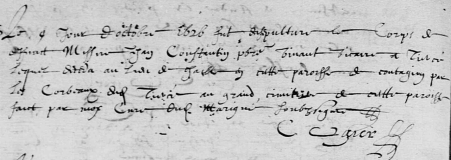 Le 9 Jour d'octobre 1626 fut Sepulture le Corps de
deffunt Messire Jean Constantin pbre Vivant Vicaire a
lequel deceda au lieu de en cette paroisse de contagion par
les Corbeaux dud au grand cimetiere de cette paroisse
faict par moy Curé dud soubzsigné